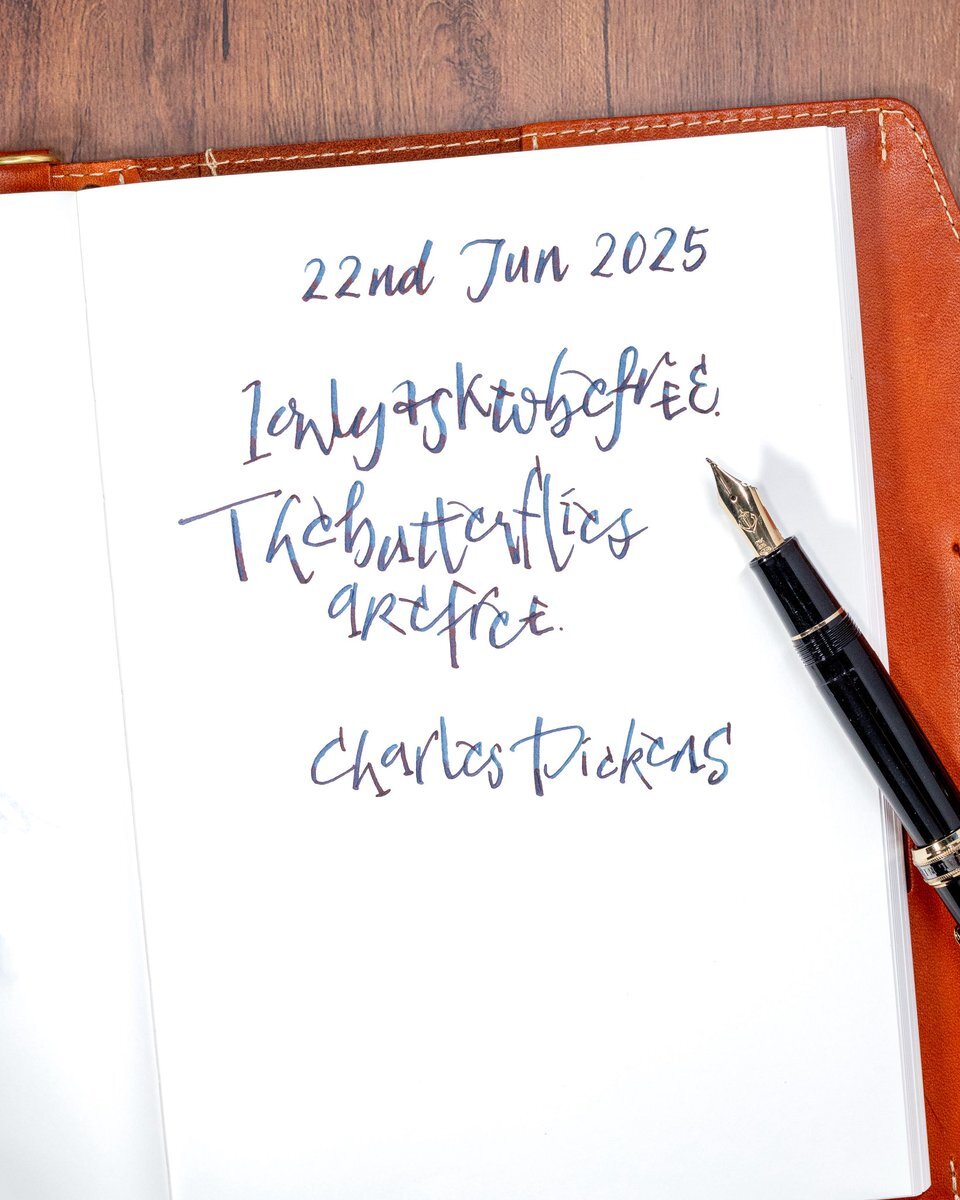 22nd Jun 2025
I only ask to be free.
The butterflies
are free.
Charles Dickens